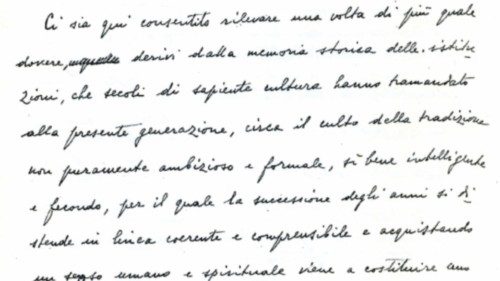 Ci sia qui consentito rilevare una volta di più quale
dovere, derivi dalla memoria storica delle istitu-
zioni, che secoli di sapiente cultura hanno tramandato
alla presente generazione, circa il culto della tradizione
non puramente ambizioso e formale, sì bene intelligente
e fecondo, per il quale la successione degli anni si di-
stende in linea coerente e comprensibile e acquistando
un senso umano e spirituale viene a costituire uno